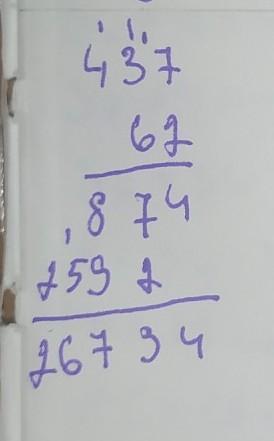 437
62
874
2592
26794